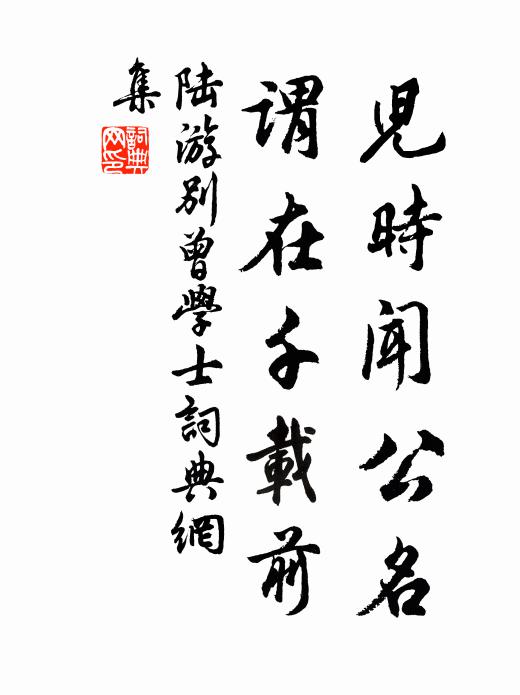 兒時聞公名
謂在千載前
陸游別曾學士詞典網
集
詞典網印